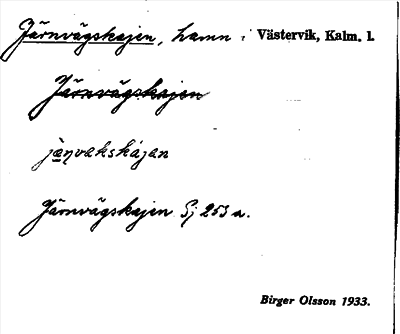 Järnvägskajen, hamn i Västervik, Kalm. l.
Järnvägskajen
jä̀ṇvakskájan
Järnvägskajen Sj 253 a.
Birger Olsson 1933.